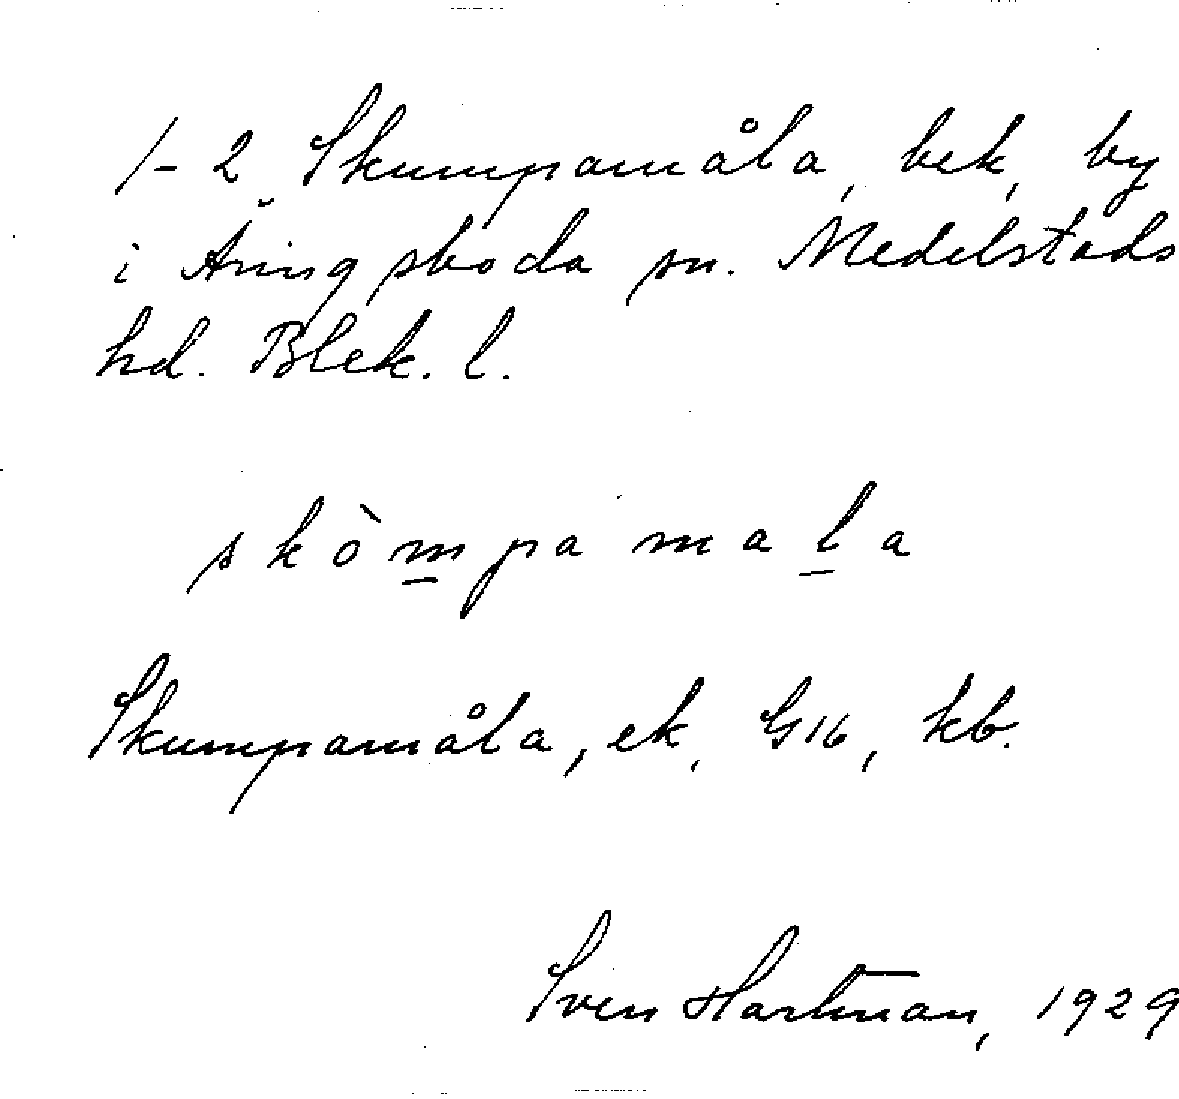 1-2 Skumpamåla, bek, by
i Äringsboda sn. Medelstads
hd. Blek. l.
skò̀mpamala
Skumpamåla, ek, G16, kb.
Sven Hartman, 1929